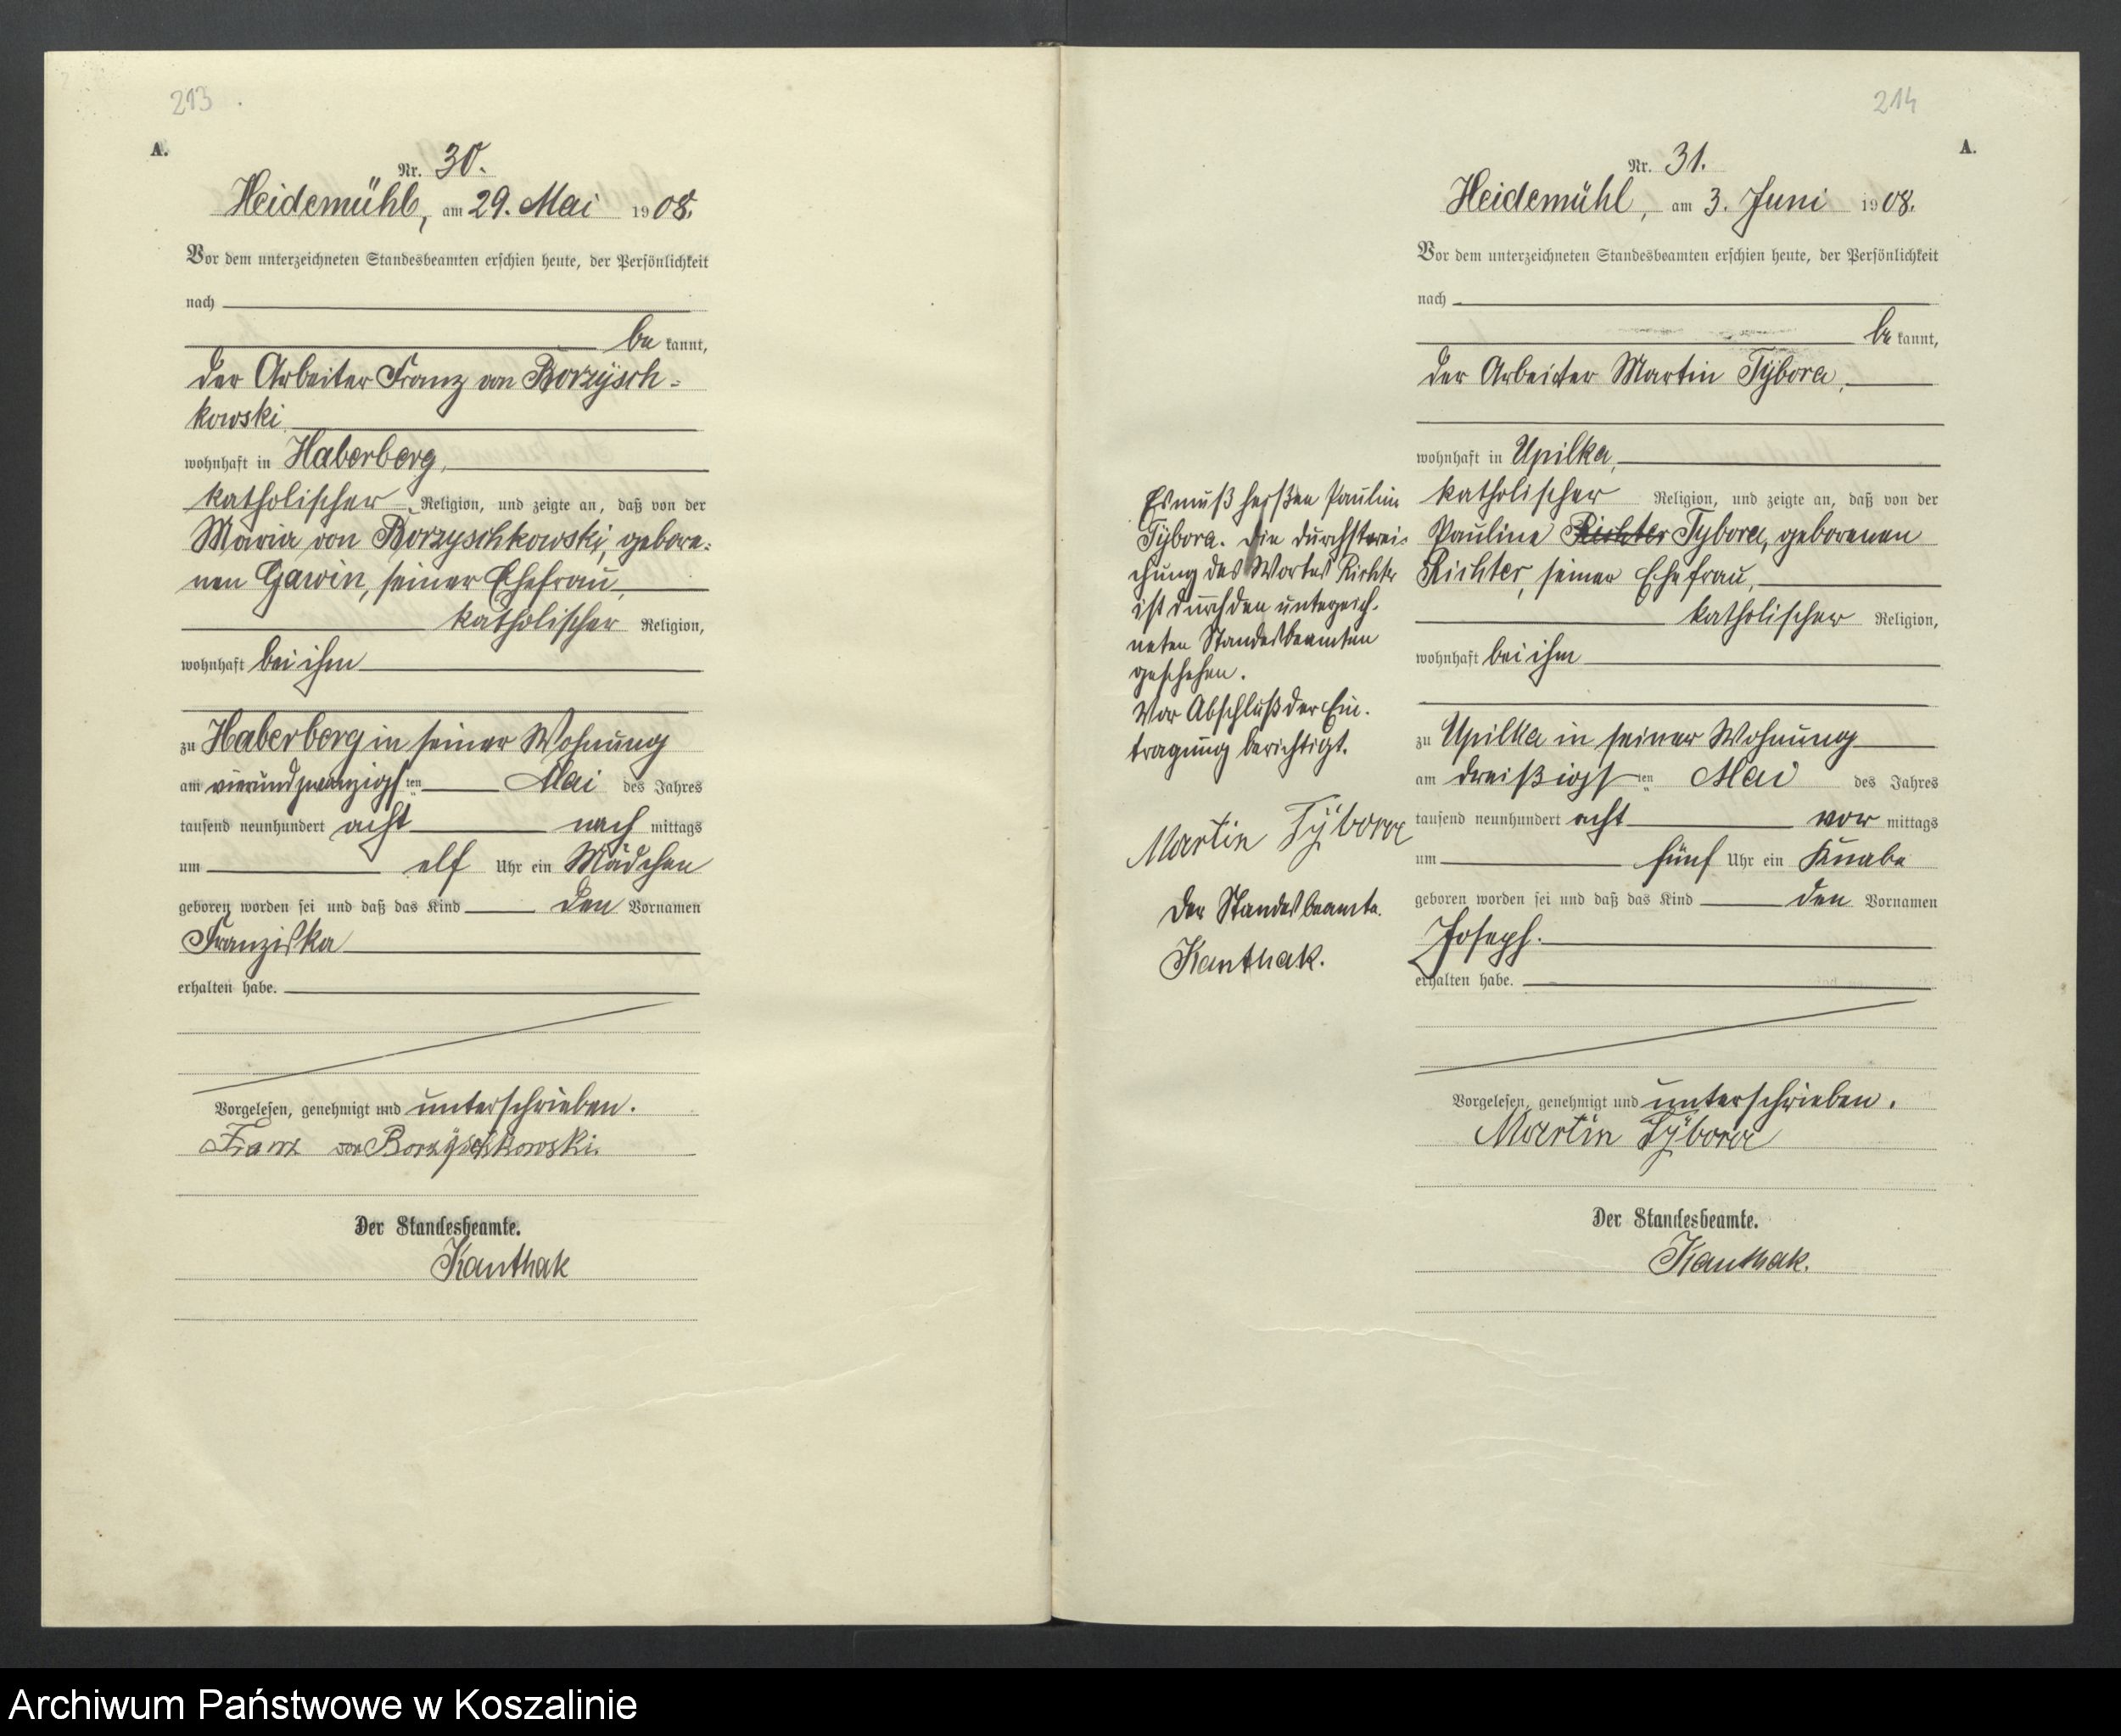 213
A.
Nr. 30.
Heidemühl, am 29. Mai 1908.
Vor dem unterzeichneten Standesbeamten erschien heute, der Persönlichkeit
nach
be kannt,
der Arbeiter Franz von Borzÿsch-
kowski
wohnhaft in Haberberg,
katholischer Religion, und zeigte an, daß von der
Maria von Borzyschkowski, gebore-
nen Gawin, seiner Ehefrau,
katholischer Religion,
wohnhaft bei ihm
zu Haberberg in seiner Wohnung
am vierundzwanzigsten Mai des Jahres
tausend neunhundert acht nach mittags
um elf Uhr ein Mädchen
geboren worden sei und daß das Kind den Vornamen
Franziska
erhalten habe.
Vorgelesen, genehmigt und unterschrieben.
Franz von Borzÿschkowski.
Der Standesbeamte.
Kanthak
214
A.
Nr. 31.
Heidemühl, am 3. Juni 1908.
Vor dem unterzeichneten Standesbeamten erschien heute, der Persönlichkeit
nach
be kannt,
der Arbeiter Martin Tÿbora,
wohnhaft in Upilka,
katholischer Religion, und zeigte an, daß von der
Pauline Richter Tybora, geborenen
Richter, seiner Ehefrau,
katholischer Religion,
wohnhaft bei ihm
zu Upilka in seiner Wohnung
am dreißigsten Mai des Jahres
tausend neunhundert acht vor mittags
um fünf Uhr ein Knabe
geboren worden sei und daß das Kind den Vornamen
Joseph.
erhalten habe.
Vorgelesen, genehmigt und unterschrieben.
Martin Tÿbora
Der Standesbeamte.
Kanthak.
Es muß heißen Pauline
Tÿbora. Die Durchstrei-
chung des Wortes Richter
ist durch den unterzeich-
neten Standesbeamten
geschehen.
Vor Abschluß der Ein-
tragung berichtigt.
Martin Tÿbora
Der Standesbeamte.
Kanthak.
Archiwum Państwowe w Koszalinie